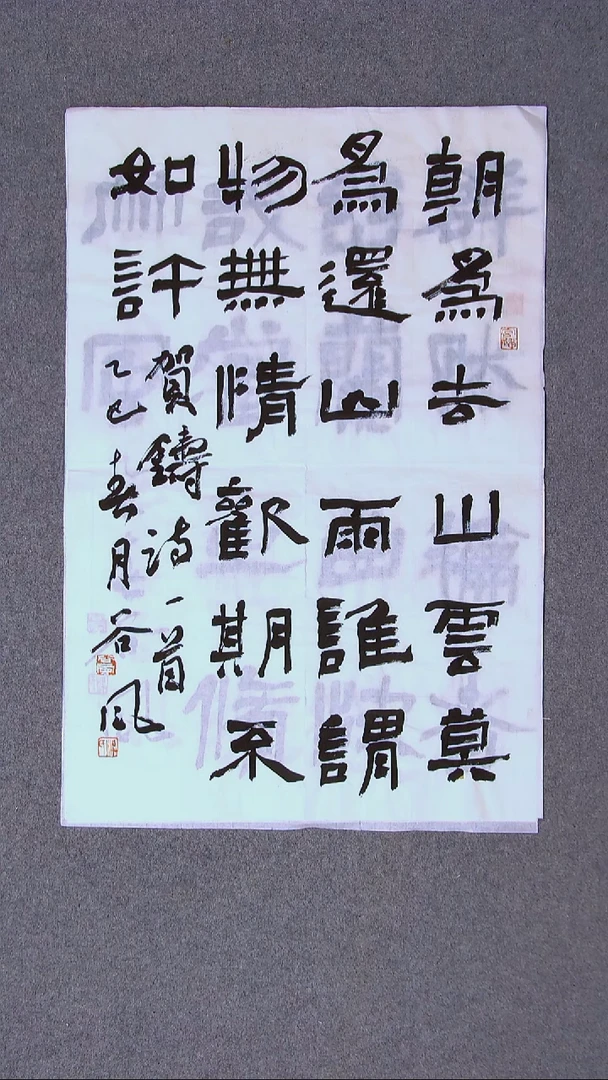 朝爲去山雲莫
爲還山雨誰謂
物無情歡期不
如許
賀鑄詩一首
乙巳春月谷風